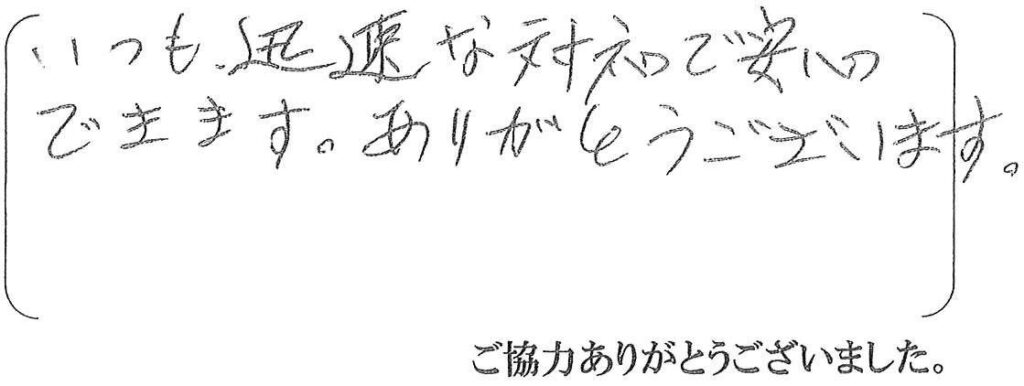 いつも迅速な対応で安心
できます。ありがとうございます。
ご協力ありがとうございました。